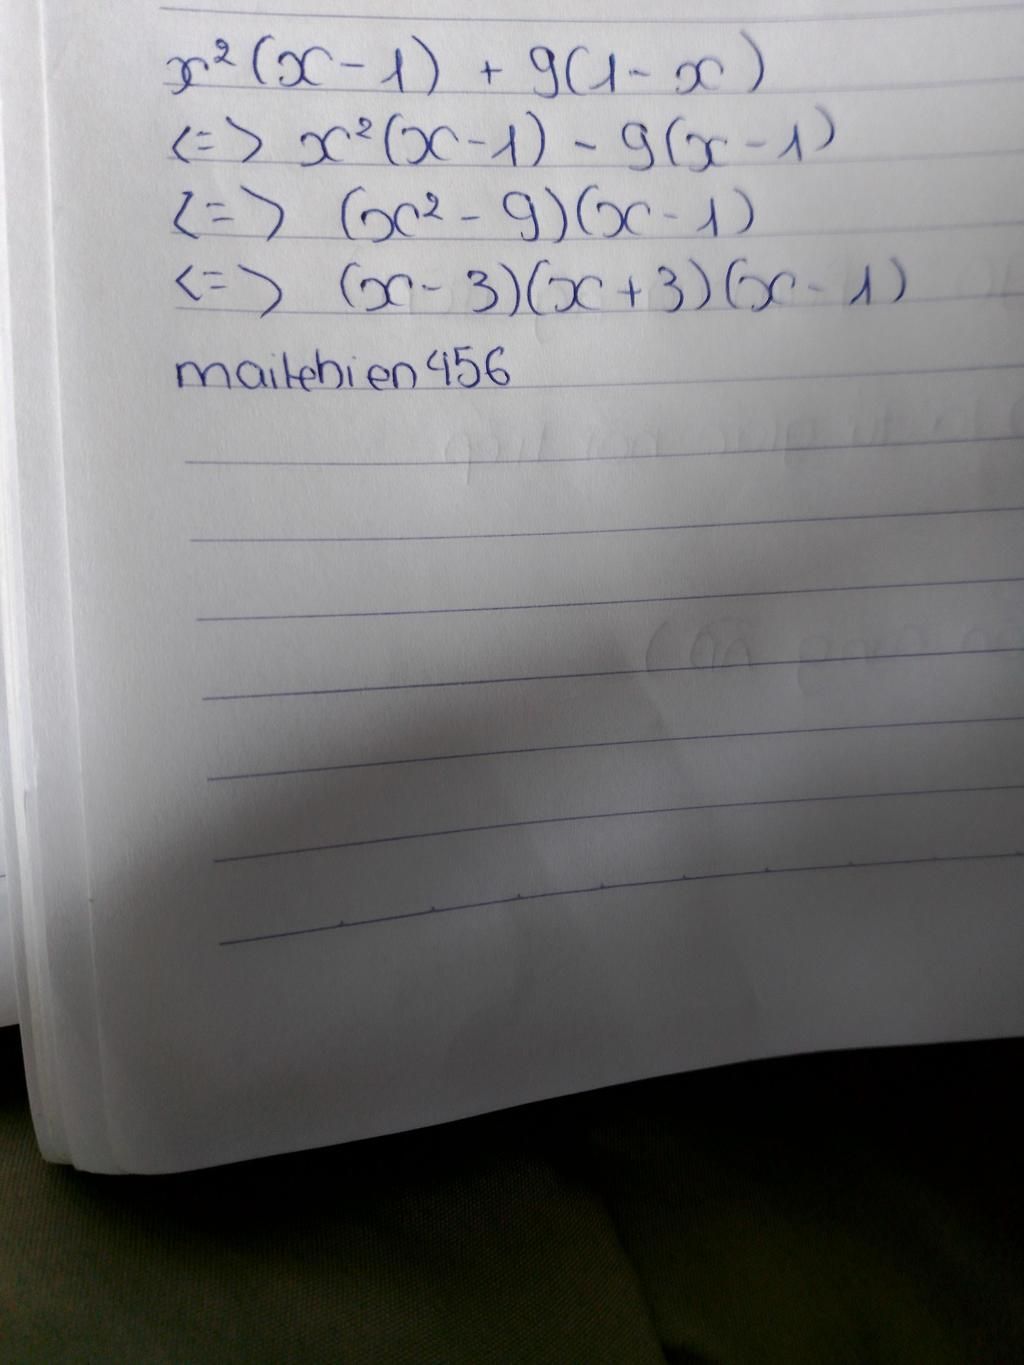 x²(x-1) + 9(1-x)
<=> x²(x-1) - 9(x-1)
<=> (x² - 9)(x-1)
<=> (x-3)(x+3)(x-1)
maitehien456